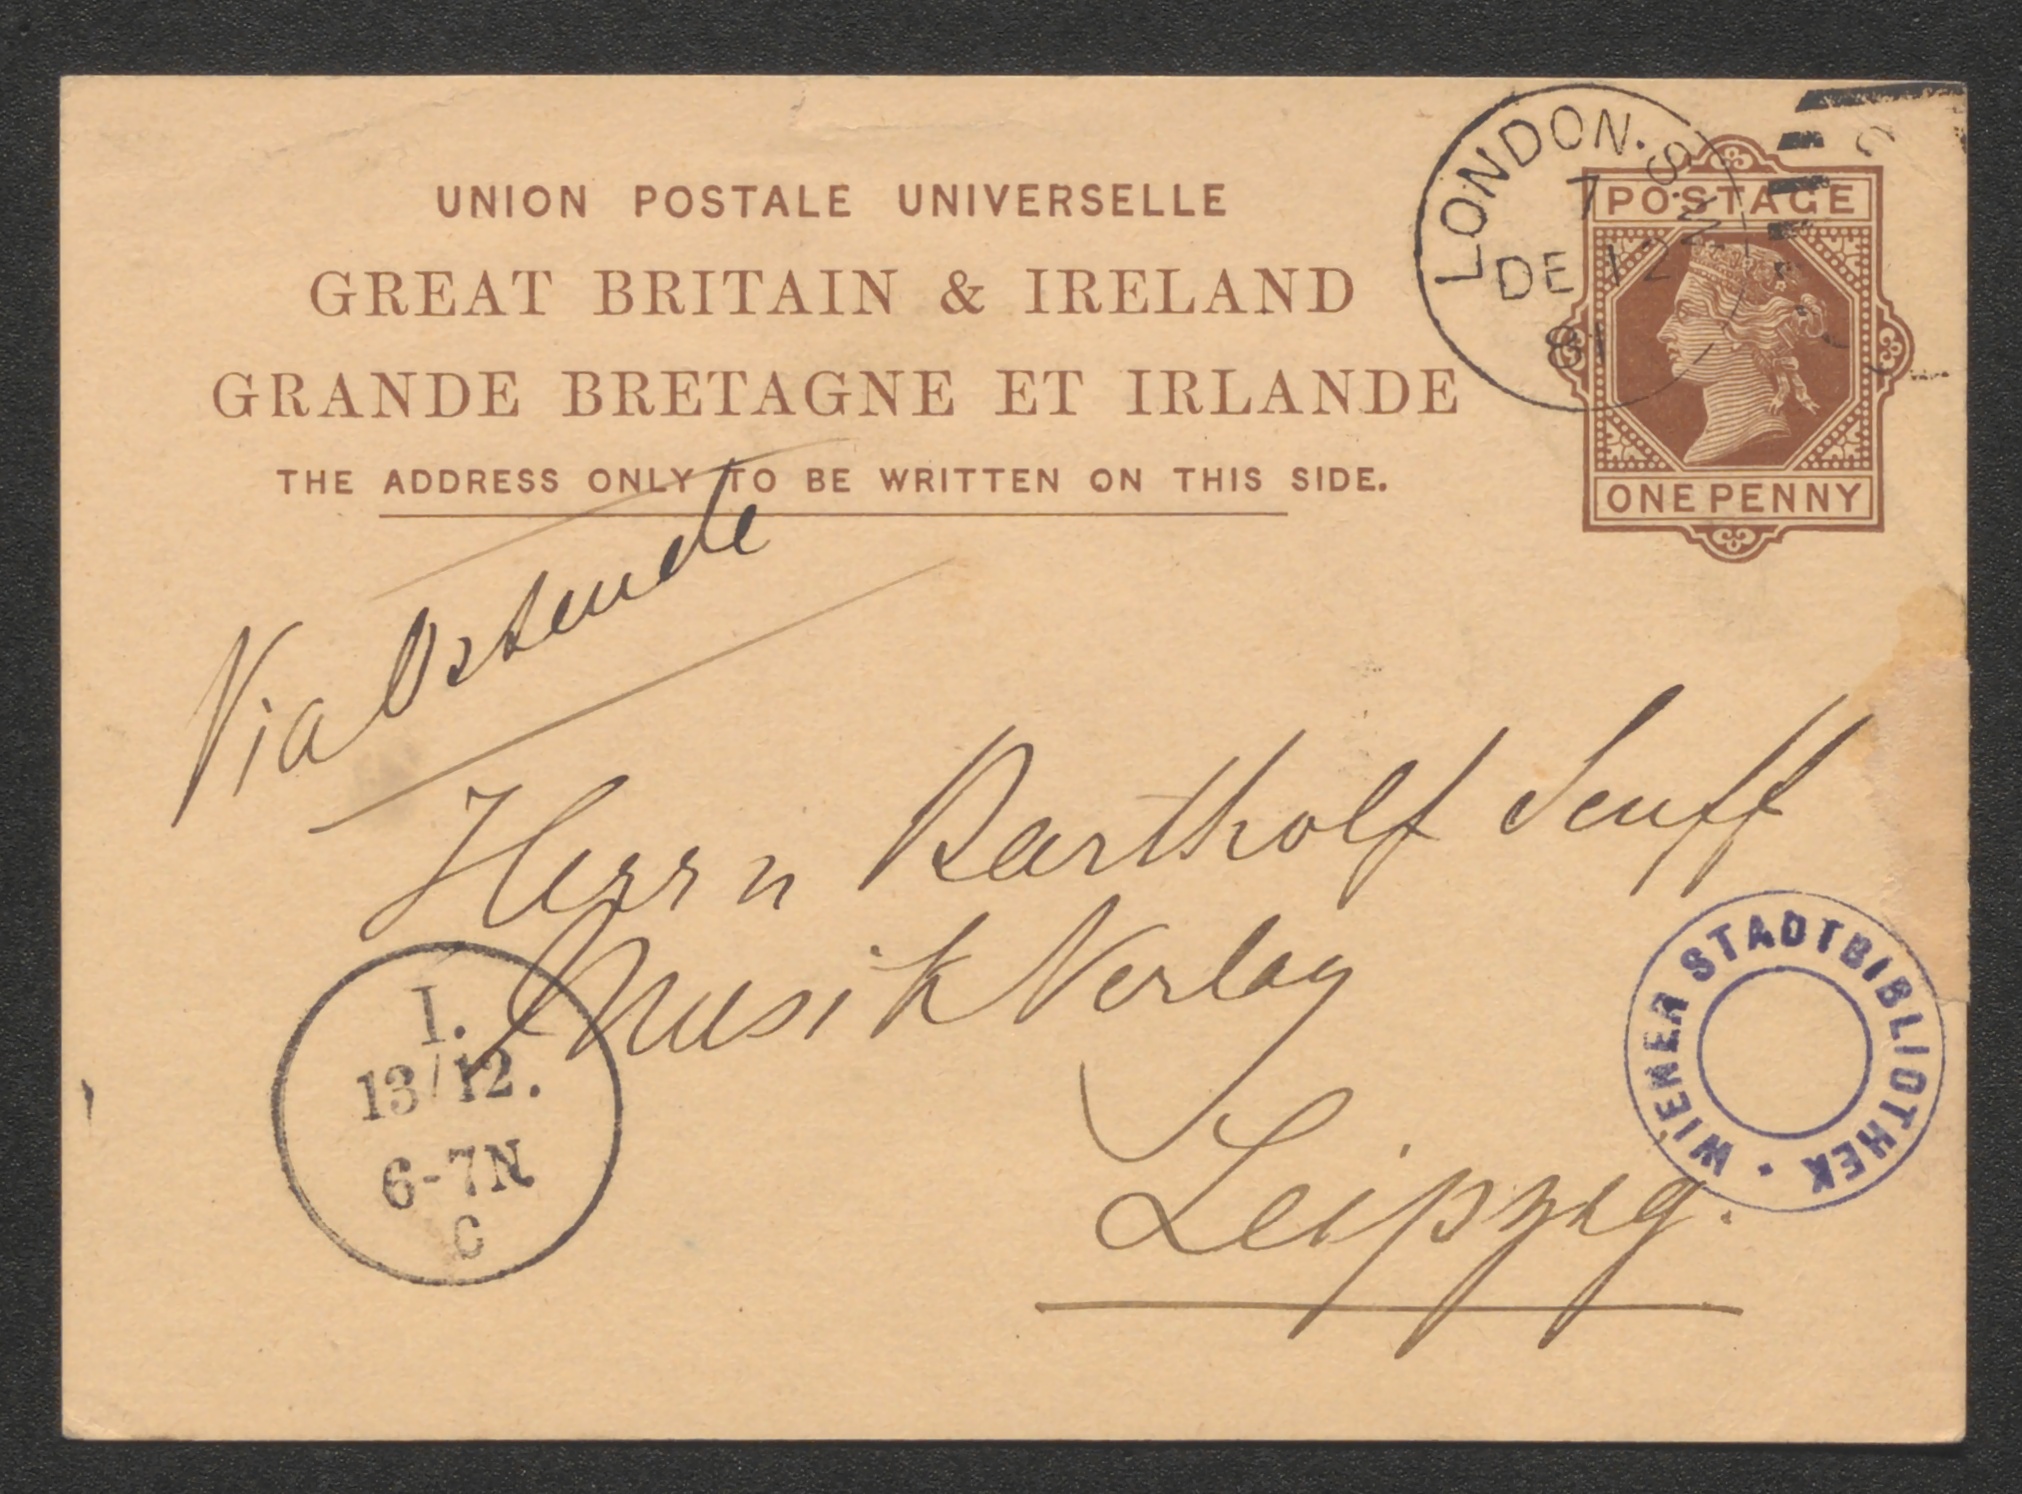 UNION POSTALE UNIVERSELLE
GREAT BRITAIN & IRELAND
GRANDE BRETAGNE ET IRLANDE
THE ADDRESS ONLY TO BE WRITTEN ON THIS SIDE.
LONDON. S.W
7
DE 12
81
POSTAGE
ONE PENNY
Via Ostende
Herrn Bartholf Senff
Musik Verlag
Leipzig.
I.
13/12.
6-7N
C
WIENER STADTBIBLIOTHEK